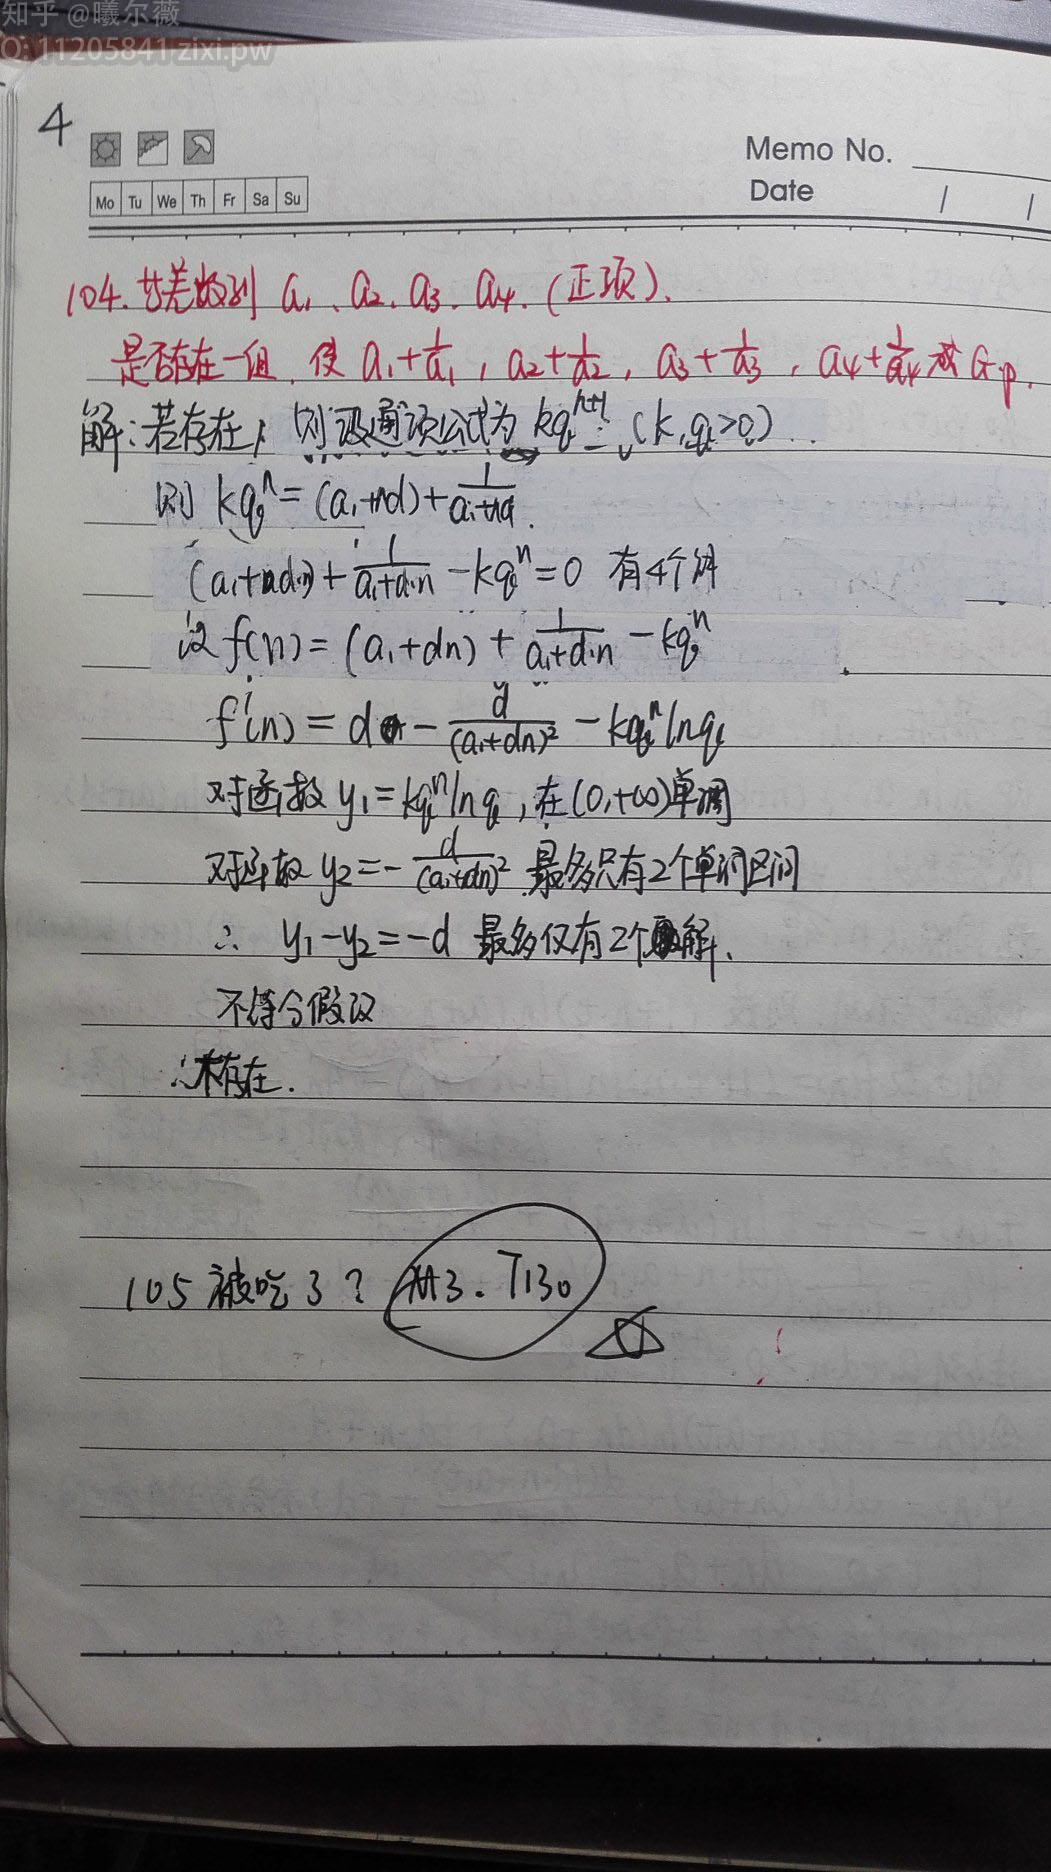 知乎 @曦尔薇
Q: 11205841 zixi.pw
4
Memo No.
Mo Tu We Th Fr Sa Su
Date / /
104. 等差数列 a₁、a₂、a₃、a₄.(正项).
是否存在一组, 使 a₁+1/a₁, a₂+1/a₂, a₃+1/a₃, a₄+1/a₄ 成 G.p.
解:若存在, 则设通项公式为 kqⁿ⁺¹ (k,q>0)
则 kqⁿ=(a₁+nd)+1/(a₁+nd).
(a₁+nd)+1/(a₁+d·n)-kqⁿ=0 有4个解
设 f(n)=(a₁+dn)+1/(a₁+d·n)-kqⁿ
f'(n)=d-d/(a₁+dn)²-kqⁿlnq
对函数 y₁=kqⁿlnq, 在(0,+∞)单调
对函数 y₂=-d/(a₁+dn)² 最多只有2个单调区间
∴ y₁-y₂=-d 最多仅有2个解.
不符合假设
∴不存在.
105 被吃了? M3. T130